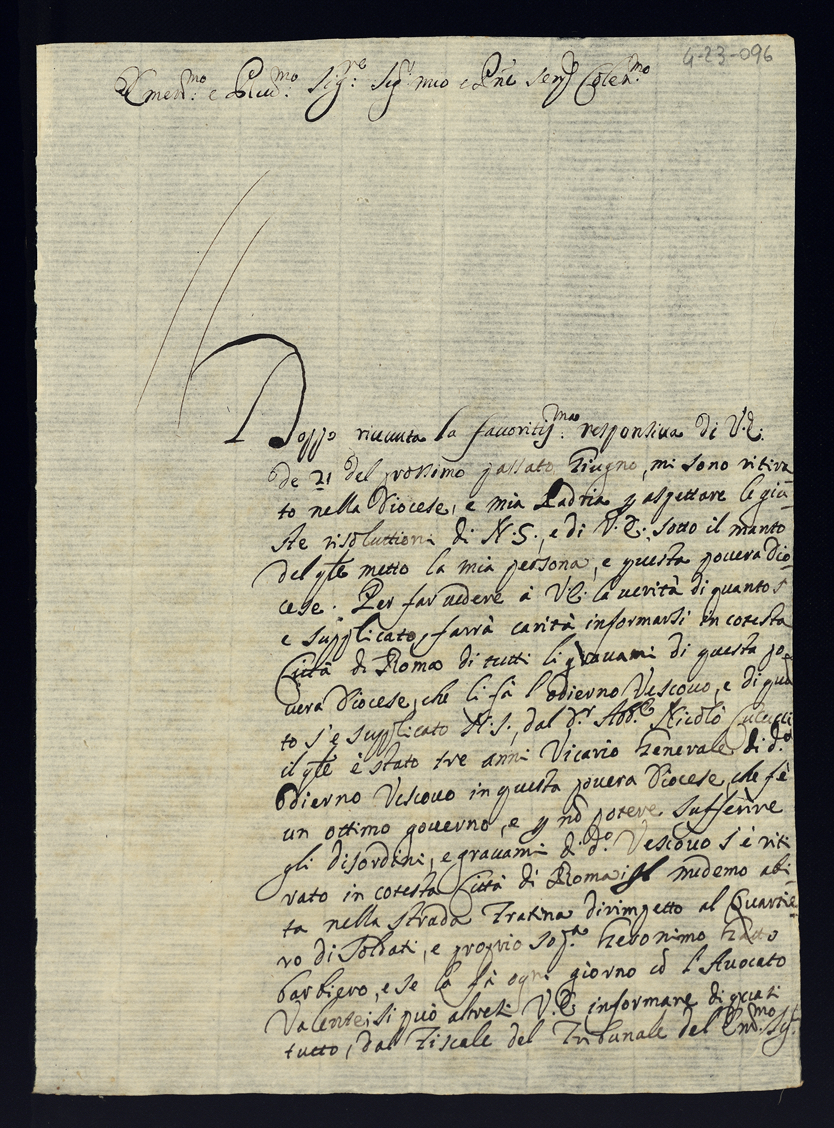 4-23-096
Emen:mo e Reud:mo Sig:re Sig:r mio e Pne Sem Colen:mo
Doppo riceuuta la fauoritis:ma responsiua di V.E.
de 21 del prossimo passato Giugno, mi sono ritira-
to nella Diocese, e mia Padria p aspettare le giu-
ste risoluttioni di N.S., e di V.E., sotto il manto
del qle metto la mia persona, e questa pouera Dio-
cese. Per far uedere à V.E. la uerità di quanto s'
e supplicato, farrà carità informarsi in cotesta
Città di Roma di tutti li grauami di questa po-
uera Diocese, che li fà l'odierno Vescouo, e di qua
to s'e supplicato N.S., dal D.r Abb.e Nicolò
il qle è stato tre anni Vicario Generale di d.o
Odierno Vescouo in questa pouera Diocese, che fè
un ottimo gouerno, e p nõ potere sufferire
gli disordini, e grauami di d.o Vescouo s'è riti
rato in cotesta Città di Roma, il medemo abi-
ta nella strada Fratina dirimpetto al Quartie-
ro di Soldati, e proprio sop.a Geronimo Gatto
barbiero, e se la fà ogni giorno cõ l'Auocato
Valente, si può altresi V.E. informare di quasi
tutto, dal Fiscale del Tribunale del Em:mo Sig.r